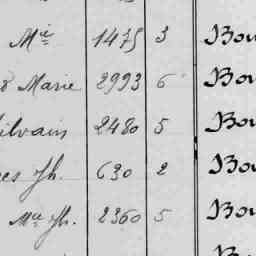 Mie 1475 3 Bou
& Marie 2993 6 Bou
ilvain 2480 5 Bou
es Jh. 630 2 Bou
Mce Jh. 2360 5 Bou